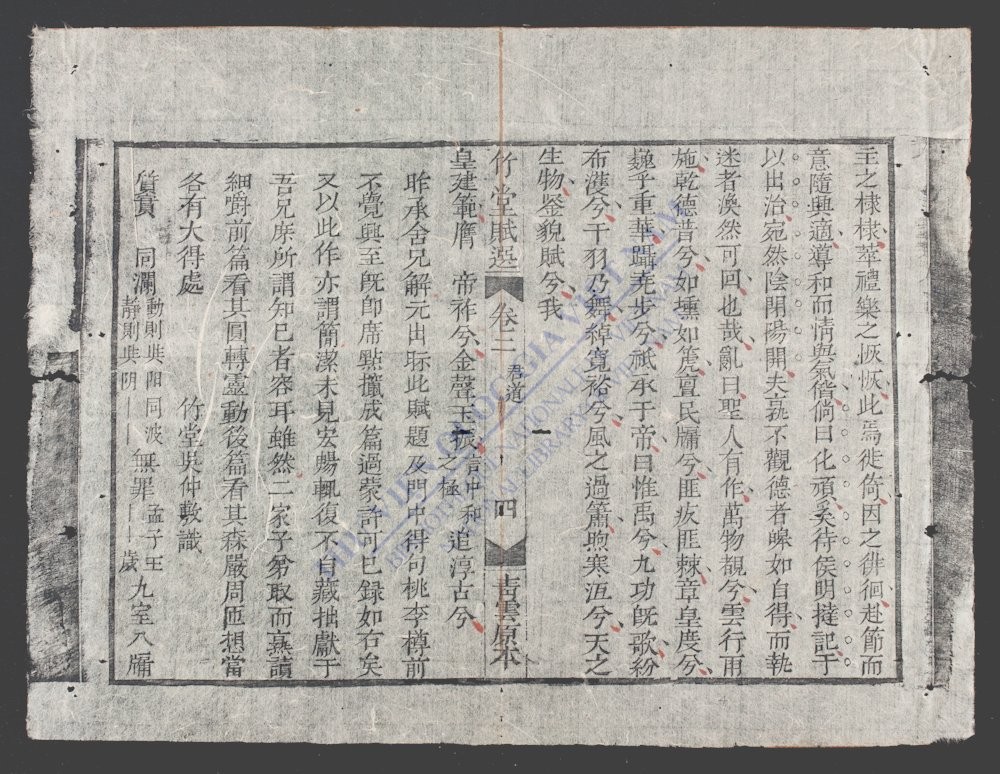 主之棣棣萃禮樂之恢恢此焉徙倚因之徘徊赴節而
意隨興適導和而情與氣偕倘曰化頑奚待侯明撻記于
以出治宛然陰閉陽開夫孰不觀德者皞如自得而執
迷者渙然可回也哉亂曰聖人有作萬物覩兮雲行雨
施乾德普兮如壎如篪亶民牖兮匪疚匪棘章皇度兮
巍乎重華躡尭步兮祇承于帝曰惟禹兮九功旣歌紛
布濩兮干羽乃舞綽寬裕兮風之過簫煦寒沍兮天之
生物鑒貌賦兮我
皇建範膺 帝祚兮金聲玉振言中和之極追淳古兮
昨承舍兄解元出眎此賦題及門中得句桃李樽前
不覺興至旣卽席點攛成篇過蒙許可已録如右矣
又以此作亦謂簡潔未見宏鬯輒復不自藏拙獻于
吾兄庠所謂知已者容耳雖然二家子弟取而熹讀
細嚼前篇看其圓轉靈動後篇看其森嚴周匝想當
各有大得處 竹堂吳仲敷識
質實 同瀾 動則與陽同波 靜則與陰——— 無罪 孟子王無罪——歲 九室八牖
竹堂賦選 卷二 君道 四 青雲原本
THƯ VIỆN QUỐC GIA VIỆT NAM
NATIONAL LIBRARY OF VIETNAM